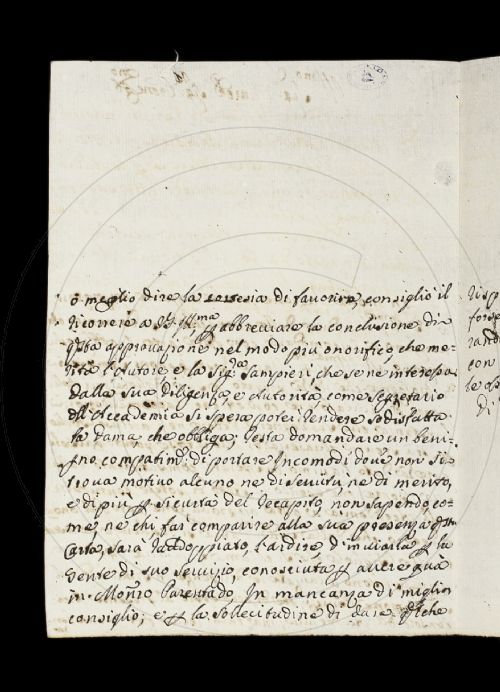 o meglio dire la cortesia di favorire, consigliò il
ricorrere a V.S. Ill.ma p abbreviare la conclusione di
q.sta approvazione nel modo più onorifico, che me-
rita l'Autore e la Sig.ra Sampieri, che se ne interessa
dalla sua diligenza, e Autorità come segretario
dell'Accademia si spera poter rendere sodisfatta
la Dama, che obbliga; resta domandare un beni-
gno compatim.to di portare incomodi dove non si
trova motivo alcuno ne di servitù, ne di merito,
e di più p sicurtà del recapito, non sapendo, co-
me, ne chi far comparire alla sua presenza q.sta
Carta, sarà raddoppiato l'ardire d'inviarla p
vente di suo servizio, conosciuta p avere quà
in Mon.ro Parentado, In mancanza di miglior
consiglio; e p la sollecitudine di dare q.lche
risp
forse
rand
con
di